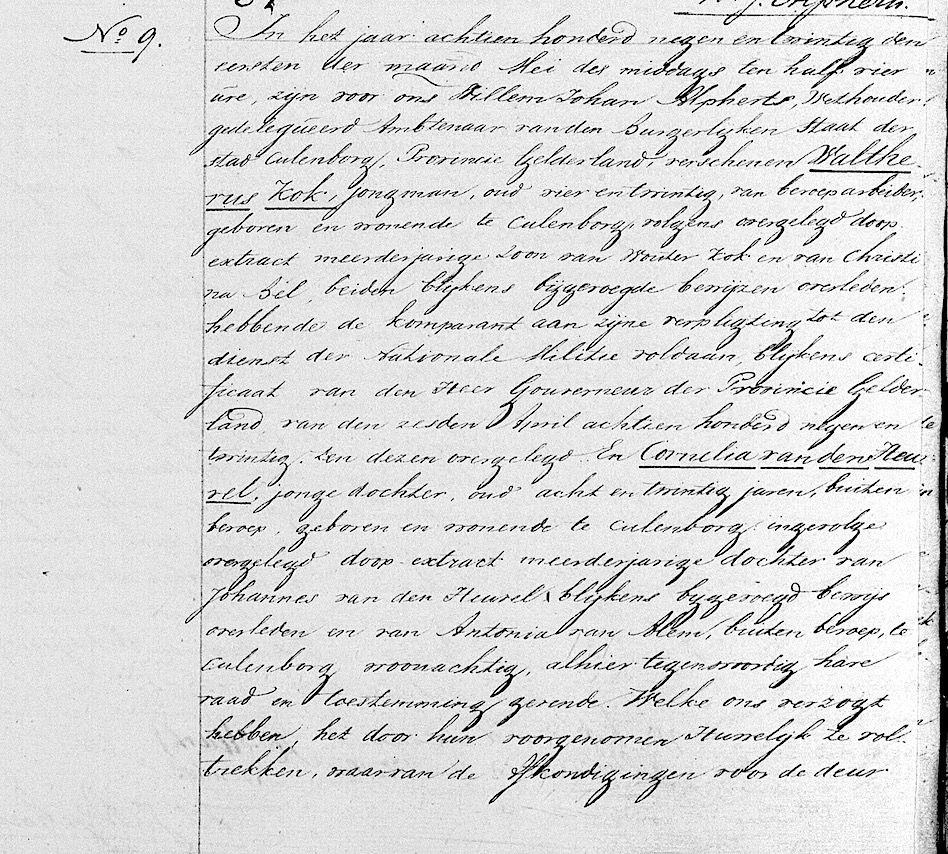 W. J. Alpherts.
No 9.
In het jaar achtien honderd negen en twintig den
eersten der maand Mei des middags ten half vier
ure, zijn voor ons Willem Johan Alpherts, Wethouder
gedelegueerd Ambtenaar van den Burgerlijken Staat der
stad Culenborg, Provincie Gelderland, verschenen Walthe
rus Kok, jongman, oud vier en twintig, van beroep arbeider,
geboren en wonende te Culenborg, volgens overgelegd doop
extract meerderjarige Zoon van Wouter Kok en van Christi
na Bel, beiden blijkens bijgevoegde bewijzen overleden.
hebbende de komparant aan zijne verpligting tot den
dienst der Nationale Militie voldaan, blijkens certi
ficaat van den Heer Gouverneur der Provincie Gelder
land van den zesden April achtien honderd negen en
twintig. Ten dezen overgelegd. En Cornelia van den Heu
vel, jonge dochter, oud acht en twintig jaren, buiten
beroep, geboren en wonende te Culenborg, ingevolge
overgelegd doop extract meerderjarige dochter van
Johannes van den Heuvel, blijkens bygevoegd bewijs
overleden en van Antonia van Alem, buiten beroep, te
Culenborg woonachtig, alhier tegenswoordig hare
raad en toestemming gevende. Welke ons verzogt
hebben, het door hun voorgenomen Huwelijk te vol
trekken, waarvan de Afkondigingen voor de deur